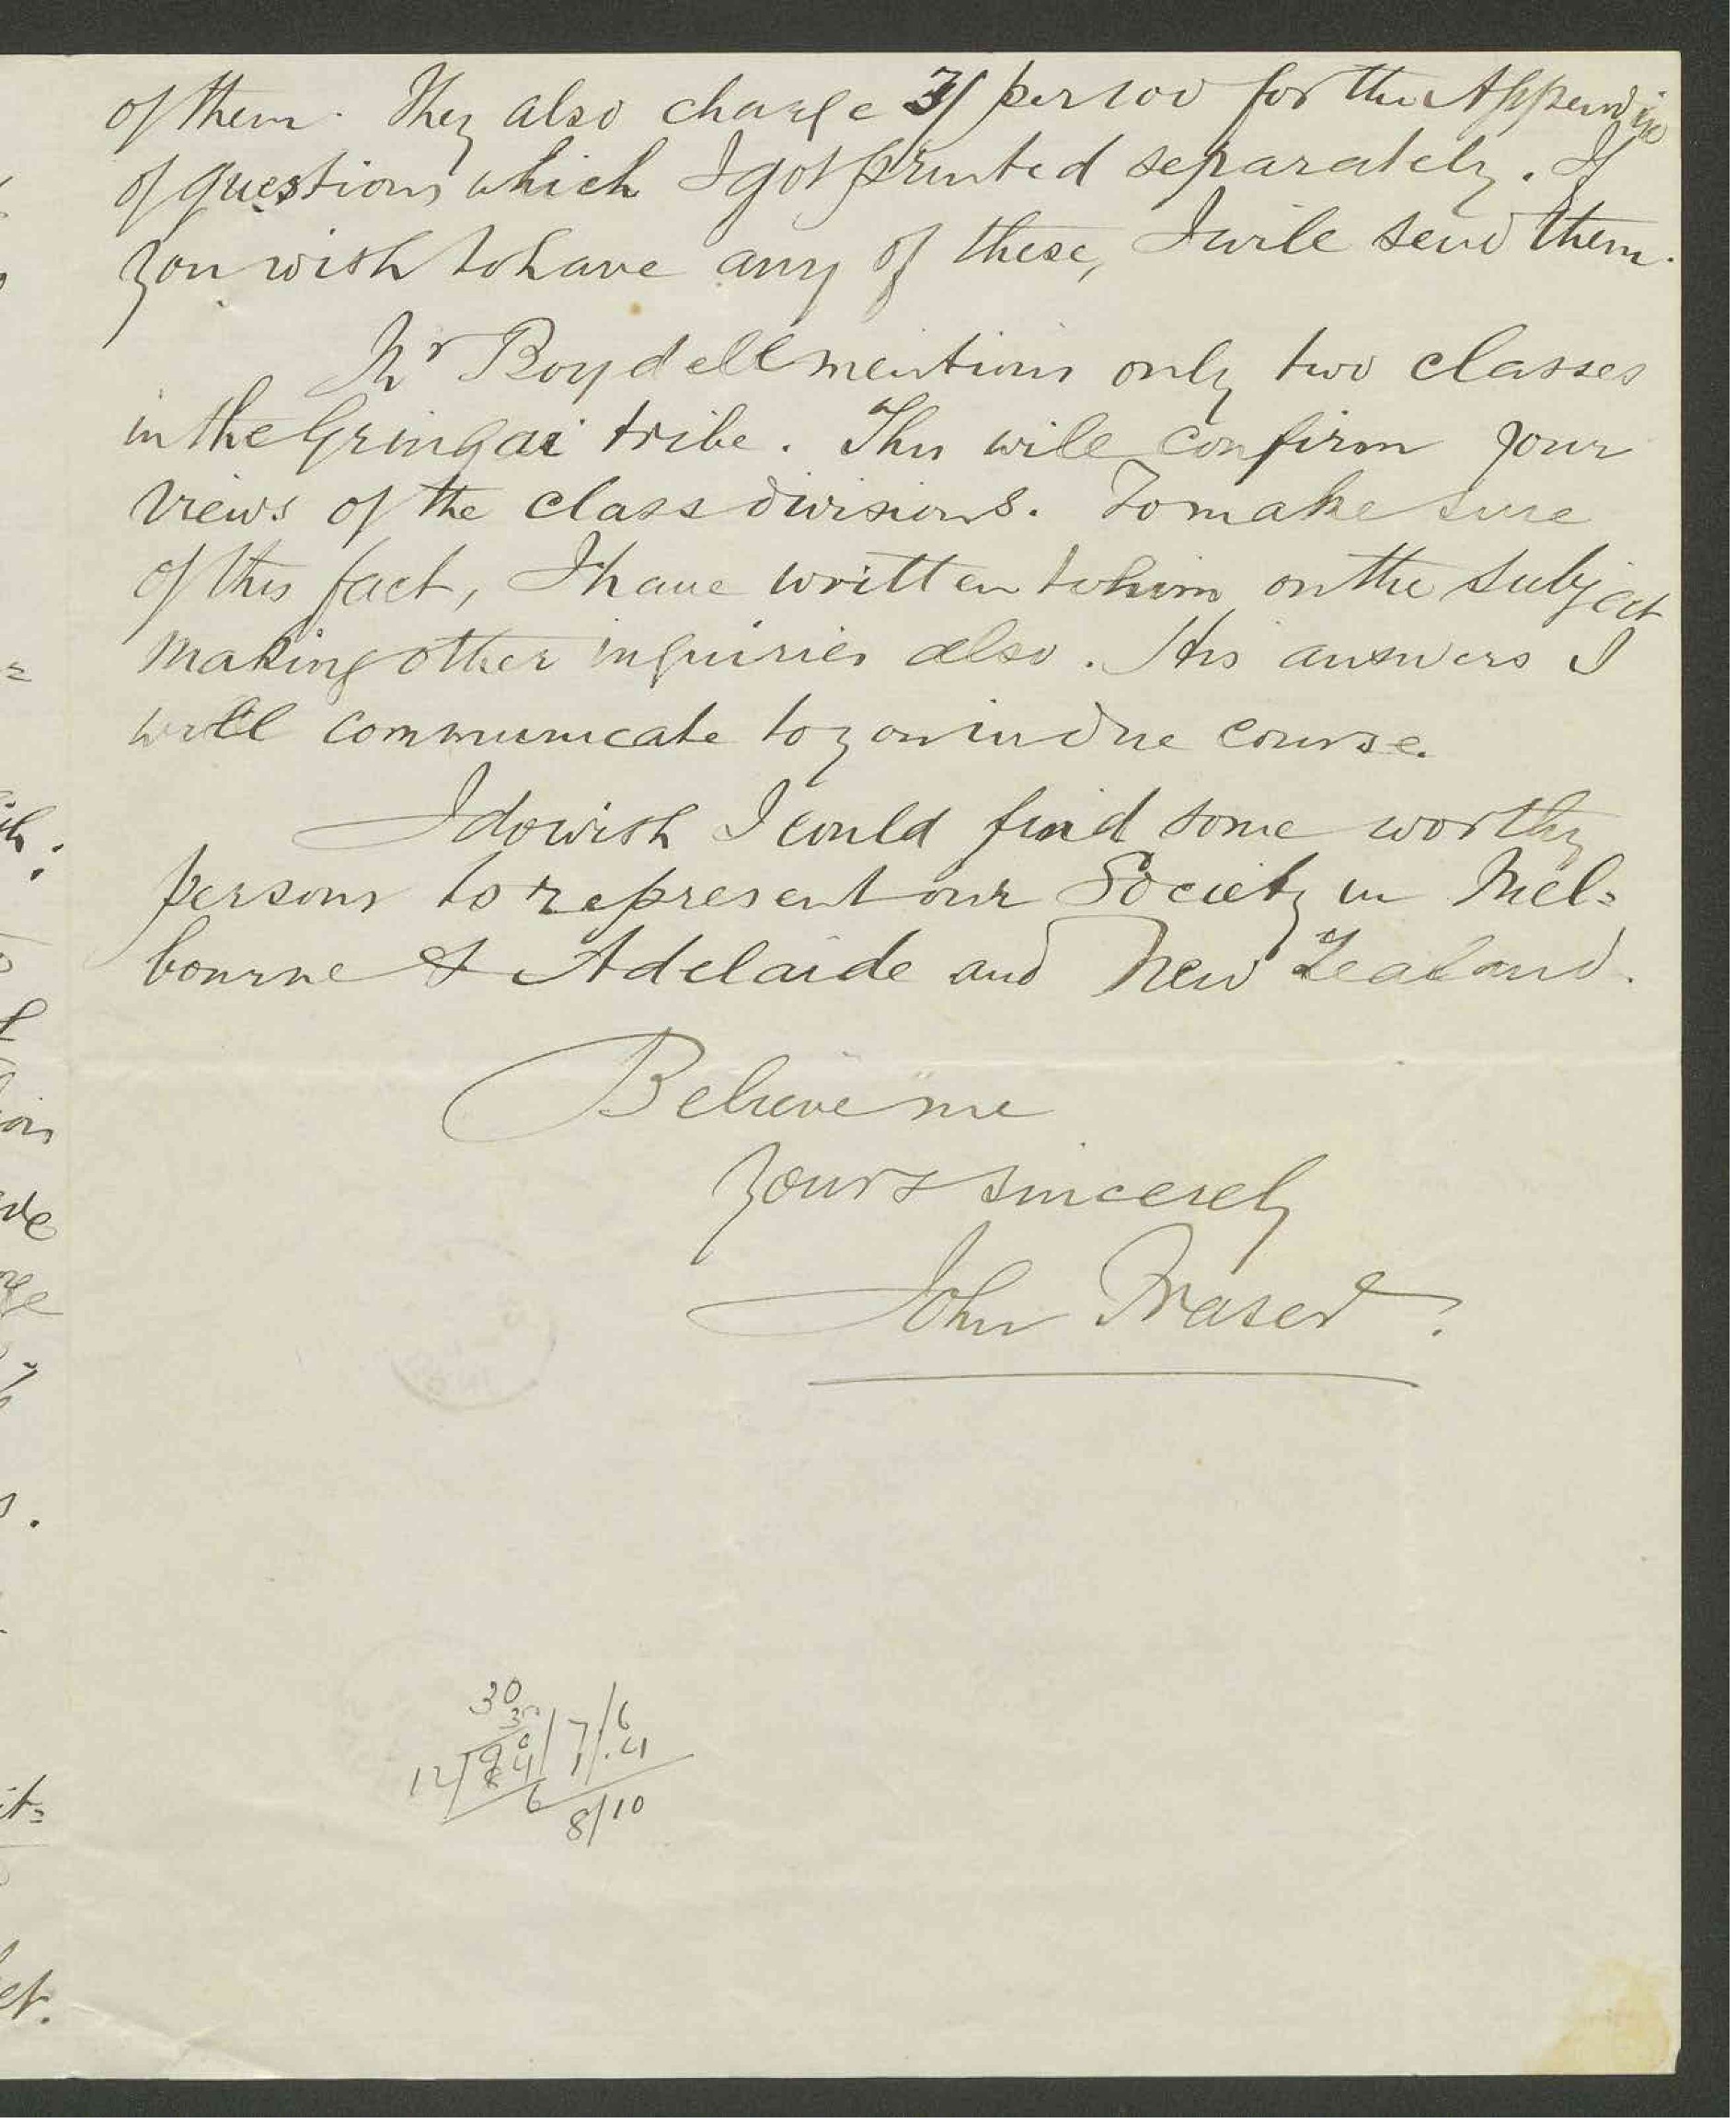 of them. They also charge 3/ per 100 for the Appendix
of questions which I got printed separately. If
you wish to have any of these, I will send them.
Mr Boydell mentions only two classes
in the Gringai tribe. This will confirm your
views of the class divisions. To make sure
of this fact, I have written to him on the subject
making other inquiries also. His answers I
will communicate to you in due course.
I do wish I could find some worthy
persons to represent our Society in Mel=
bourne & Adelaide and New Zealand.
Believe me
Yours sincerely
John Fraser.
30
7/6
12
1.4
6
8/10